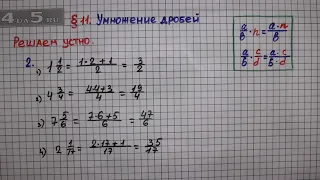 4 а 5.ru
§ 11. Умножение дробей
Решаем устно.
a/b · n = a·n/b
a/b · c/d = a·c/b·d
2.
1) 1 1/2 = 1·2+1/2 = 3/2
2) 4 3/4 = 4·4+3/4 = 19/4
3) 7 5/6 = 7·6+5/6 = 47/6
4) 2 1/17 = 2·17+1/17 = 35/17